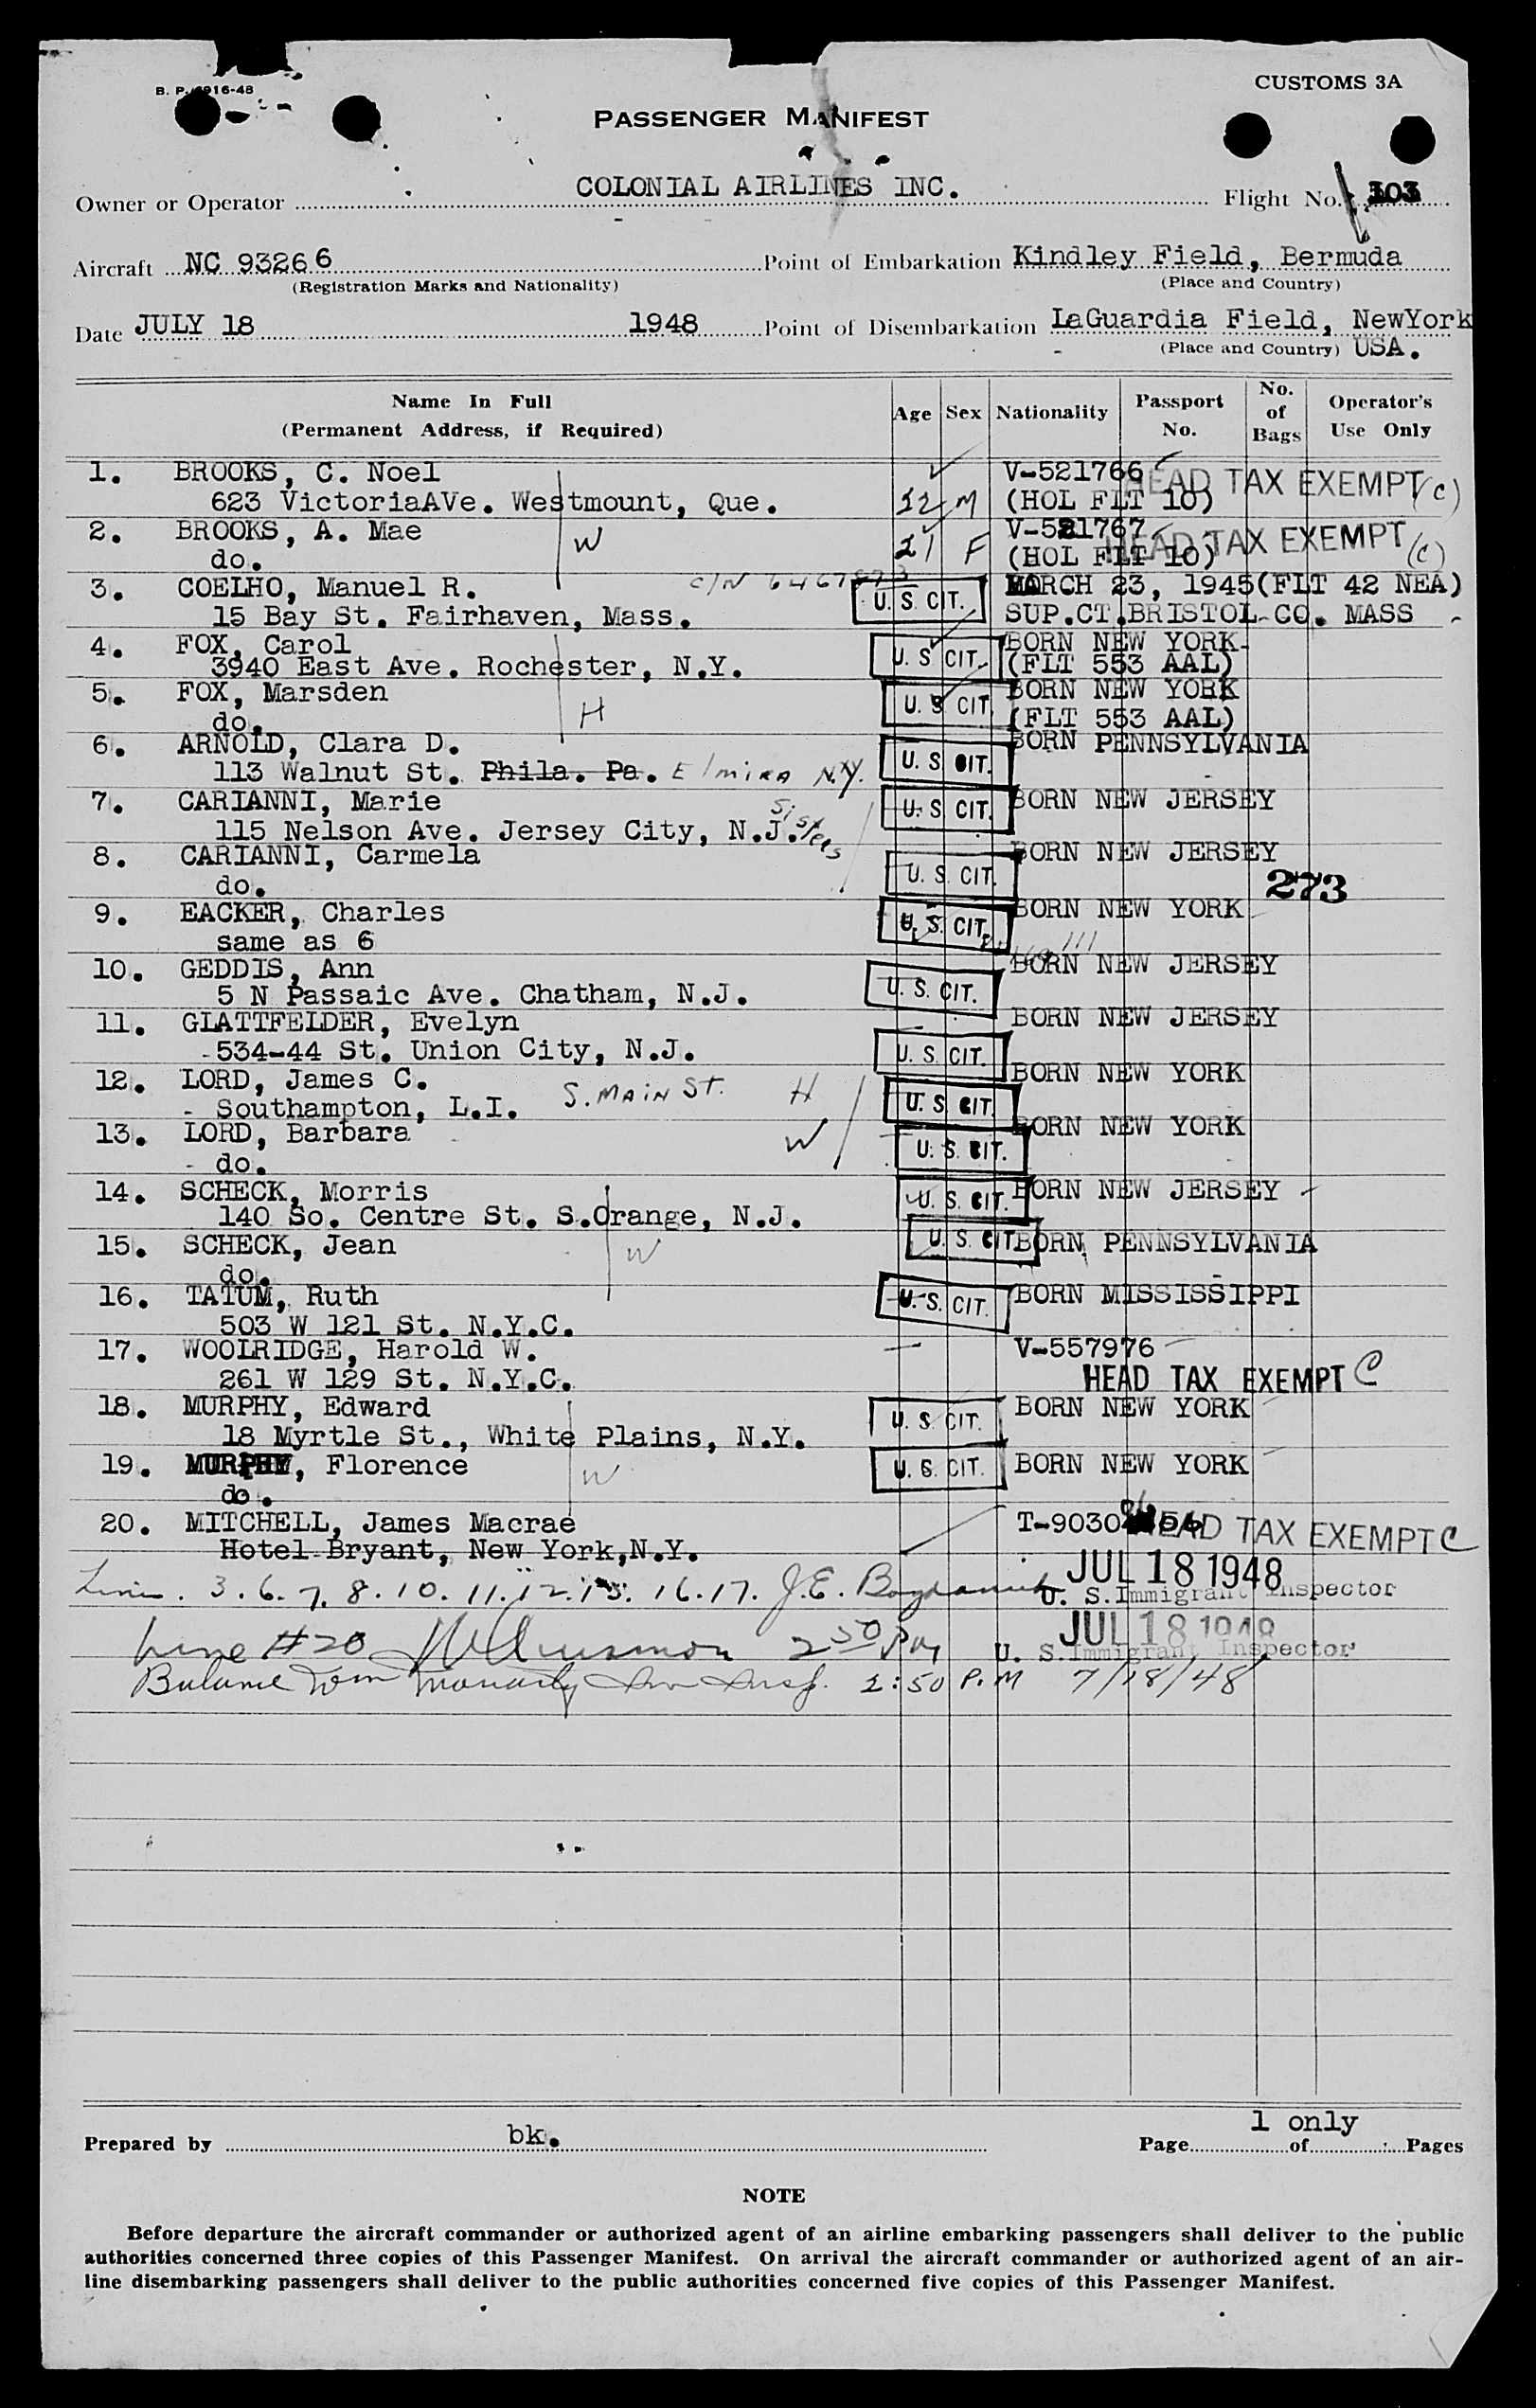 B. P. 6916-48
CUSTOMS 3A
PASSENGER MANIFEST
Owner or Operator COLONIAL AIRLINES INC. Flight No. 103
Aircraft NC 93266 Point of Embarkation Kindley Field, Bermuda
(Registration Marks and Nationality) (Place and Country)
Date JULY 18 1948 Point of Disembarkation LaGuardia Field, NewYork
(Place and Country) USA.
Name In Full (Permanent Address, if Required) Age Sex Nationality Passport No. No. of Bags Operator's Use Only
1. BROOKS, C. Noel V-521766 HEAD TAX EXEMPT (C)
623 VictoriaAVe. Westmount, Que. 22 M (HOL FLT 10)
2. BROOKS, A. Mae W V-521767 HEAD TAX EXEMPT (C)
do. 21 F (HOL FLT 10)
3. COELHO, Manuel R. C/N U. S. CIT. MARCH 23, 1945(FLT 42 NEA)
15 Bay St. Fairhaven, Mass. SUP.CT.BRISTOL CO. MASS
4. FOX, Carol U. S. CIT. BORN NEW YORK
3940 East Ave. Rochester, N.Y. (FLT 553 AAL)
5. FOX, Marsden U. S. CIT. BORN NEW YORK
do. H (FLT 553 AAL)
6. ARNOLD, Clara D. U. S. CIT. BORN PENNSYLVANIA
113 Walnut St. Phila. Pa. Elmira N.Y.
7. CARIANNI, Marie Sisters U. S. CIT. BORN NEW JERSEY
115 Nelson Ave. Jersey City, N.J.
8. CARIANNI, Carmela U. S. CIT. BORN NEW JERSEY
do. 273
9. EACKER, Charles U. S. CIT. BORN NEW YORK
same as 6
10. GEDDIS, Ann U. S. CIT. BORN NEW JERSEY
5 N Passaic Ave. Chatham, N.J.
11. GLATTFELDER, Evelyn U. S. CIT. BORN NEW JERSEY
534-44 St. Union City, N.J.
12. LORD, James C. S. MAIN ST. H U. S. CIT. BORN NEW YORK
Southampton, L.I.
13. LORD, Barbara W U. S. CIT. BORN NEW YORK
do.
14. SCHECK, Morris U. S. CIT. BORN NEW JERSEY
140 So. Centre St. S.Orange, N.J.
15. SCHECK, Jean W U. S. CIT. BORN PENNSYLVANIA
do.
16. TATUM, Ruth U. S. CIT. BORN MISSISSIPPI
503 W 121 St. N.Y.C.
17. WOOLRIDGE, Harold W. V-557976
261 W 129 St. N.Y.C. HEAD TAX EXEMPT C
18. MURPHY, Edward U. S. CIT. BORN NEW YORK
18 Myrtle St., White Plains, N.Y.
19. MURPHY, Florence W U. S. CIT. BORN NEW YORK
do.
20. MITCHELL, James Macrae HEAD TAX EXEMPT C
Hotel Bryant, New York,N.Y.
JUL 18 1948
3. 6. 7. 8. 10. 11. 12. 13. 16. 17. J.E. U. S. Immigrant Inspector
JUL 18 1948
Line #20 2 50 PM U. S. Immigrant Inspector
Balance 2:50 P.M 7/18/48
Prepared by bk. Page 1 only of Pages
NOTE
Before departure the aircraft commander or authorized agent of an airline embarking passengers shall deliver to the public
authorities concerned three copies of this Passenger Manifest. On arrival the aircraft commander or authorized agent of an air-
line disembarking passengers shall deliver to the public authorities concerned five copies of this Passenger Manifest.